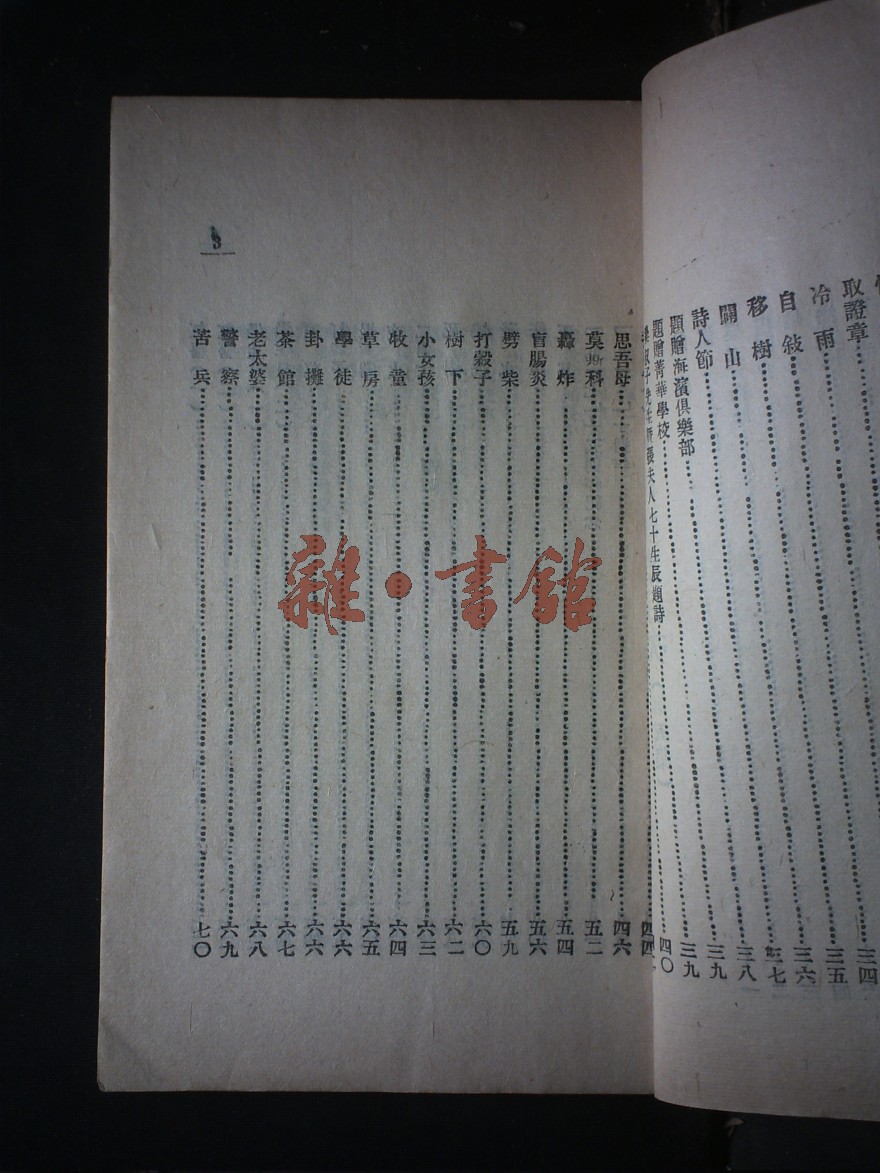 取證章……三四
冷雨……三五
自敍……三六
移樹……三七
開山……三八
詩人節……三九
題贈海濱俱樂部……三九
題贈菁華學校……四〇
夫人七十生辰題詩……四四
3
思吾母……四六
莫斯科……五二
轟炸……五四
盲腸炎……五六
劈柴……五九
打穀子……六〇
樹下……六二
小女孩……六三
牧童……六四
草房……六五
學徒……六六
卦攤……六六
茶館……六七
老太婆……六八
警察……六九
苦兵……七〇
雜·書館